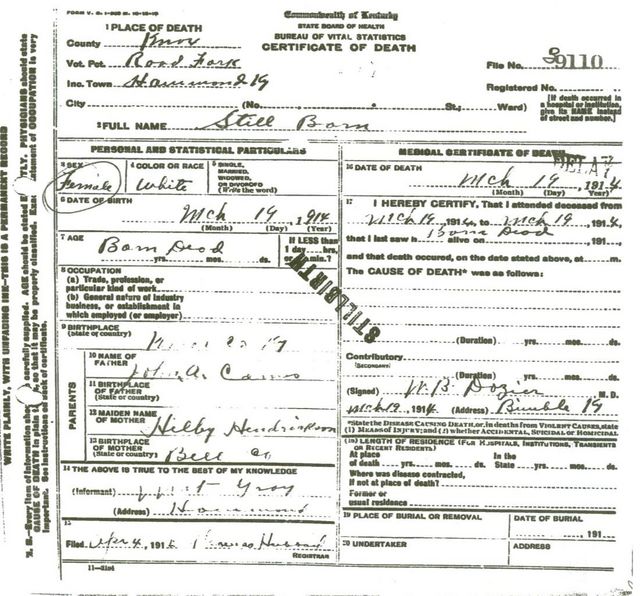 Commonwealth of Kentucky
STATE BOARD OF HEALTH
BUREAU OF VITAL STATISTICS
CERTIFICATE OF DEATH
1 PLACE OF DEATH
County Knox
Vot. Pct. Road Fork
Inc. Town Hammond Ky
City (No. St.; Ward)
File No. 9110
Registered No.
[If death occurred in a hospital or institution, give its NAME instead of street and number.]
2 FULL NAME Still Born
PERSONAL AND STATISTICAL PARTICULARS
3 SEX Female
4 COLOR OR RACE White
5 SINGLE, MARRIED, WIDOWED, OR DIVORCED (Write the word)
6 DATE OF BIRTH
Mch 19 1914
(Month) (Day) (Year)
7 AGE Born Dead
yrs. mos. ds.
If LESS than 1 day hrs. or min.?
8 OCCUPATION
(a) Trade, profession, or particular kind of work
(b) General nature of industry business, or establishment in which employed (or employer)
9 BIRTHPLACE
(State or country)
PARENTS
10 NAME OF FATHER
11 BIRTHPLACE OF FATHER
(State or country)
12 MAIDEN NAME OF MOTHER Hilby Hendrickson
13 BIRTHPLACE OF MOTHER
(State or country) Bell Co
14 THE ABOVE IS TRUE TO THE BEST OF MY KNOWLEDGE
(Informant) Gray
(Address) Hammond
15
Filed Apr 4, 191 Hubbard
REGISTRAR
11-3184
MEDICAL CERTIFICATE OF DEATH
DELAY
16 DATE OF DEATH
Mch 19, 1914
(Month) (Day) (Year)
17 I HEREBY CERTIFY, That I attended deceased from
Mch 19, 1914, to Mch 19, 1914,
that I last saw h alive on Born Dead, 191
and that death occurred, on the date stated above, at m.
The CAUSE OF DEATH* was as follows:
STILLBIRTH
(Duration) yrs. mos. ds.
Contributory
(SECONDARY)
(Duration) yrs. mos. ds.
(Signed) W. B. Dozier M. D.
Mch 19, 1914 (Address) Bimble Ky
*State the DISEASE CAUSING DEATH, or, in deaths from VIOLENT CAUSES, state (1) MEANS OF INJURY; and (2) whether ACCIDENTAL, SUICIDAL or HOMICIDAL
18 LENGTH OF RESIDENCE (FOR HOSPITALS, INSTITUTIONS, TRANSIENTS OR RECENT RESIDENTS)
At place of death yrs. mos. ds. In the State yrs. mos. ds.
Where was disease contracted, if not at place of death?
Former or usual residence
19 PLACE OF BURIAL OR REMOVAL
DATE OF BURIAL
, 191
20 UNDERTAKER
ADDRESS
WRITE PLAINLY, WITH UNFADING INK—THIS IS A PERMANENT RECORD